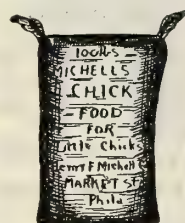 100 lbs
MICHELL'S
CHICK
FOOD
FOR
Little Chicks
Henry F Michell C
MARKET ST
Phila